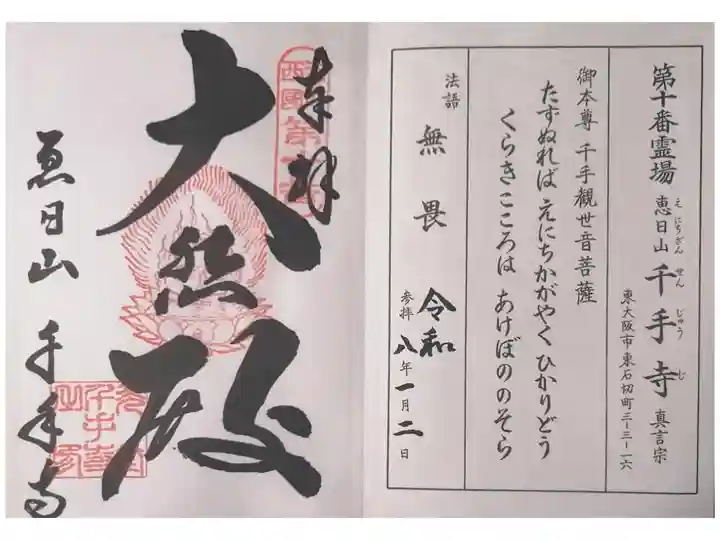 第十番霊場 恵日山 千手寺 真言宗
えにちざん せんじゅうじ
東大阪市東石切町三-三-一六
御本尊 千手観世音菩薩
たずぬれば えにちかがやく ひかりどう
くらきこころは あけぼののそら
法語 無畏
参拝 令和八年一月二日
奉拝
大悲殿
恵日山 千手寺